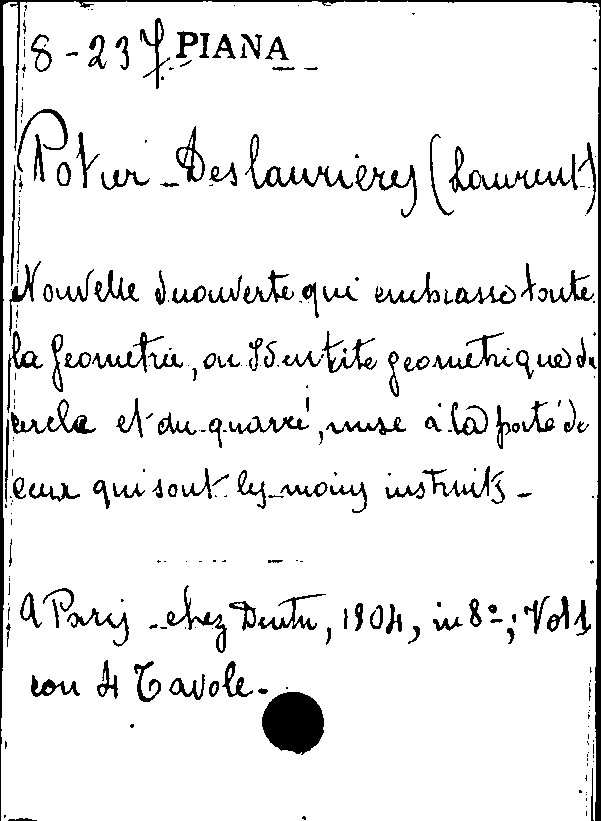 8-23 f PIANA
Potier-Deslaurières (Laurent)
Nouvelle decouverte qui embrasse toute
la Geometrie, ou Identité geometrique du
cercle et du quarré, mise à la porté de
ceux qui sont les moins instruits-
A Paris - chez Dentu, 1804, in 8°-; Vol 1
con 4 Tavole-